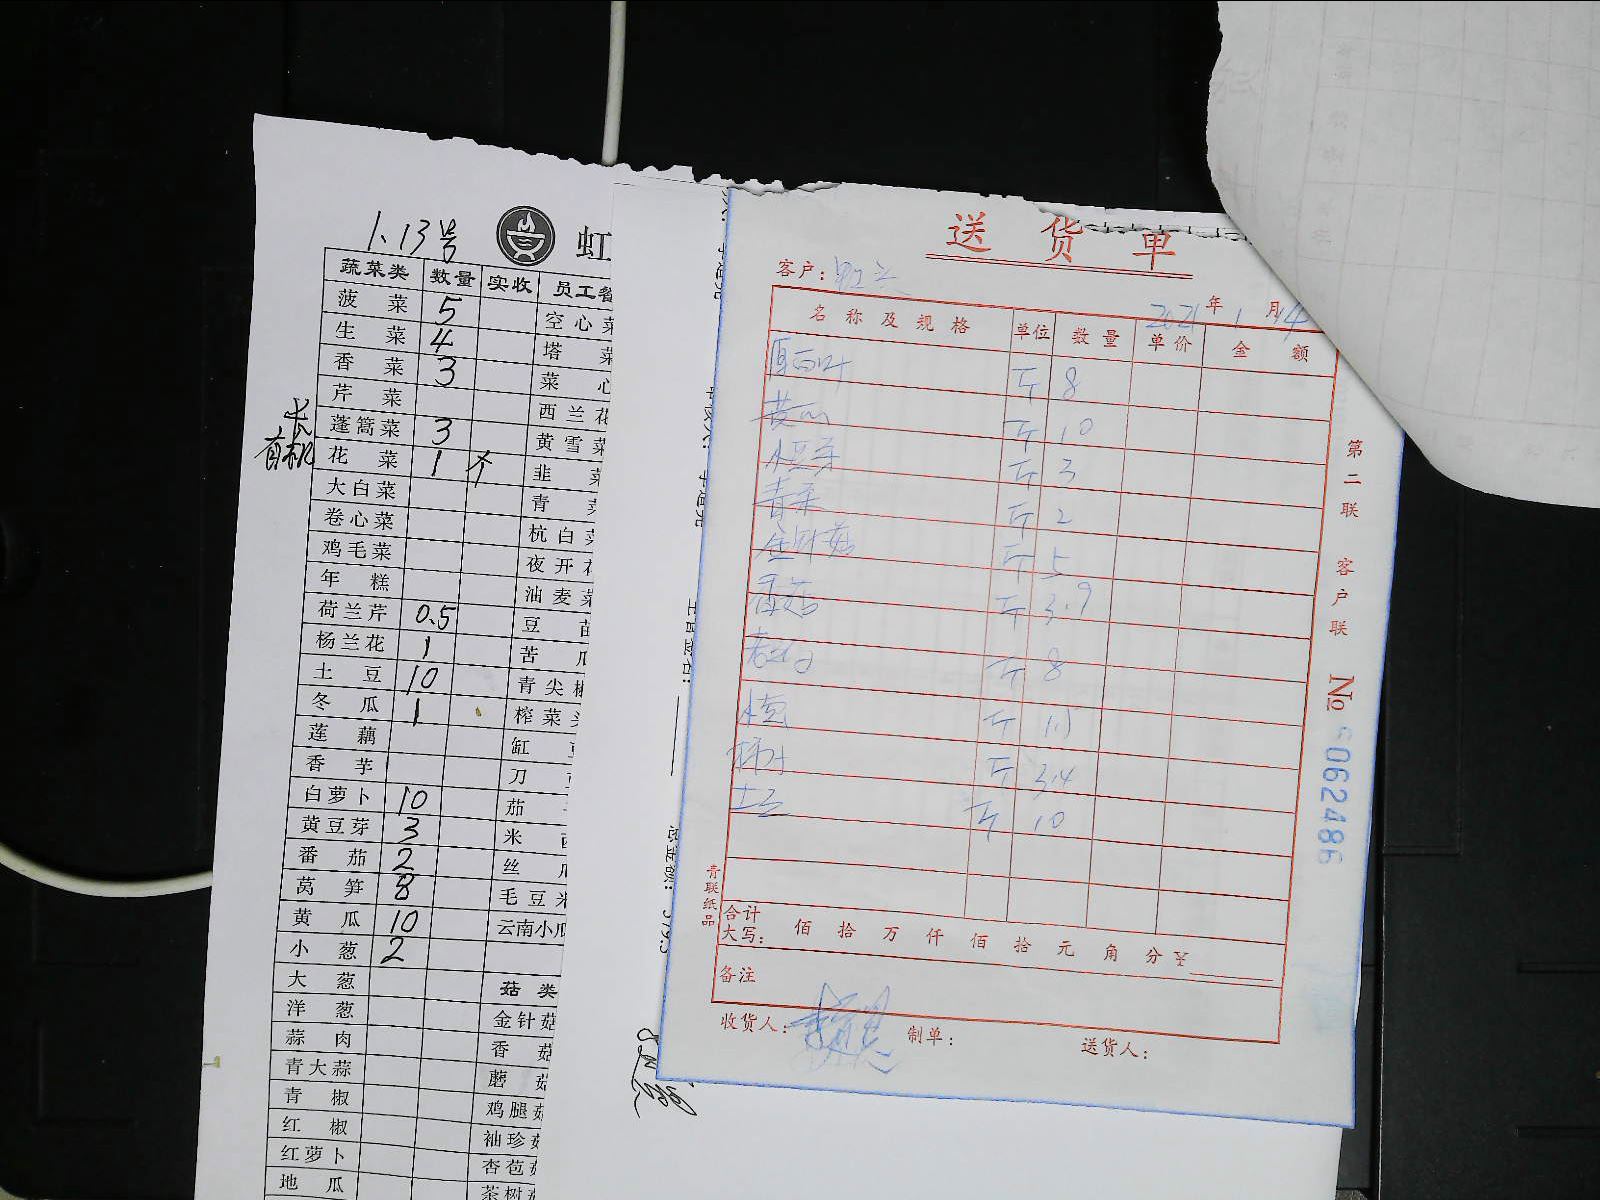 1.13号
虹
蔬菜类 数量 实收 员工餐
菠菜 5 空心菜
生菜 4 塔菜
香菜 3 菜心
芹菜 西兰花
蓬蒿菜 3 黄雪菜
长
有机
花菜 1 个 韭菜
大白菜 青菜
卷心菜 杭白菜
鸡毛菜 夜开花
年糕 油麦菜
荷兰芹 0.5 豆苗
杨兰花 1 苦瓜
土豆 10 青尖椒
冬瓜 1 榨菜
莲藕 缸豆
香芋 刀豆
白萝卜 10 茄
黄豆芽 3 米
番茄 2 丝瓜
莴笋 8 毛豆米
黄瓜 10 云南小瓜
小葱 2
大葱 菇类
洋葱 金针菇
蒜肉 香菇
青大蒜 蘑菇
青椒 鸡腿菇
红椒 袖珍菇
红萝卜 杏苞菇
地瓜 茶树菇
送货单
客户:
2021年1月14
名称及规格 单位 数量 单价 金额
斤 8
黄瓜 斤 10
小豆芽 斤 3
香菜 斤 2
金针菇 斤 5
香菇 斤 3.9
斤 8
小葱 斤 1.5
斤 3.4
土豆 斤 10
合计
大写: 佰 拾 万 仟 佰 拾 元 角 分 ¥
备注
收货人: 制单: 送货人:
第二联 客户联
No 6062486
青联纸品